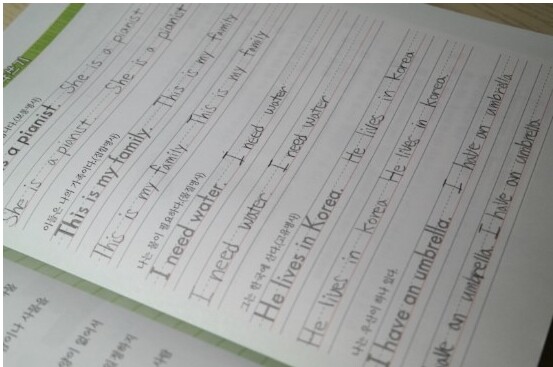 is a pianist. She is a pianist
She is a pianist. She is a pianist
이들은 나의 가족이다(집합명사)
This is my family. This is my family
This is my family This is my family
나는 물이 필요하다(물질명사)
I need water. I need water
I need water I need water
그는 한국에 산다(고유명사)
He lives in Korea. He lives in Korea
He lives in korea He lives in Korea
나는 우산이 하나 있다.
I have an umbrella. I have an umbrella
an umbrella I have an umbrella